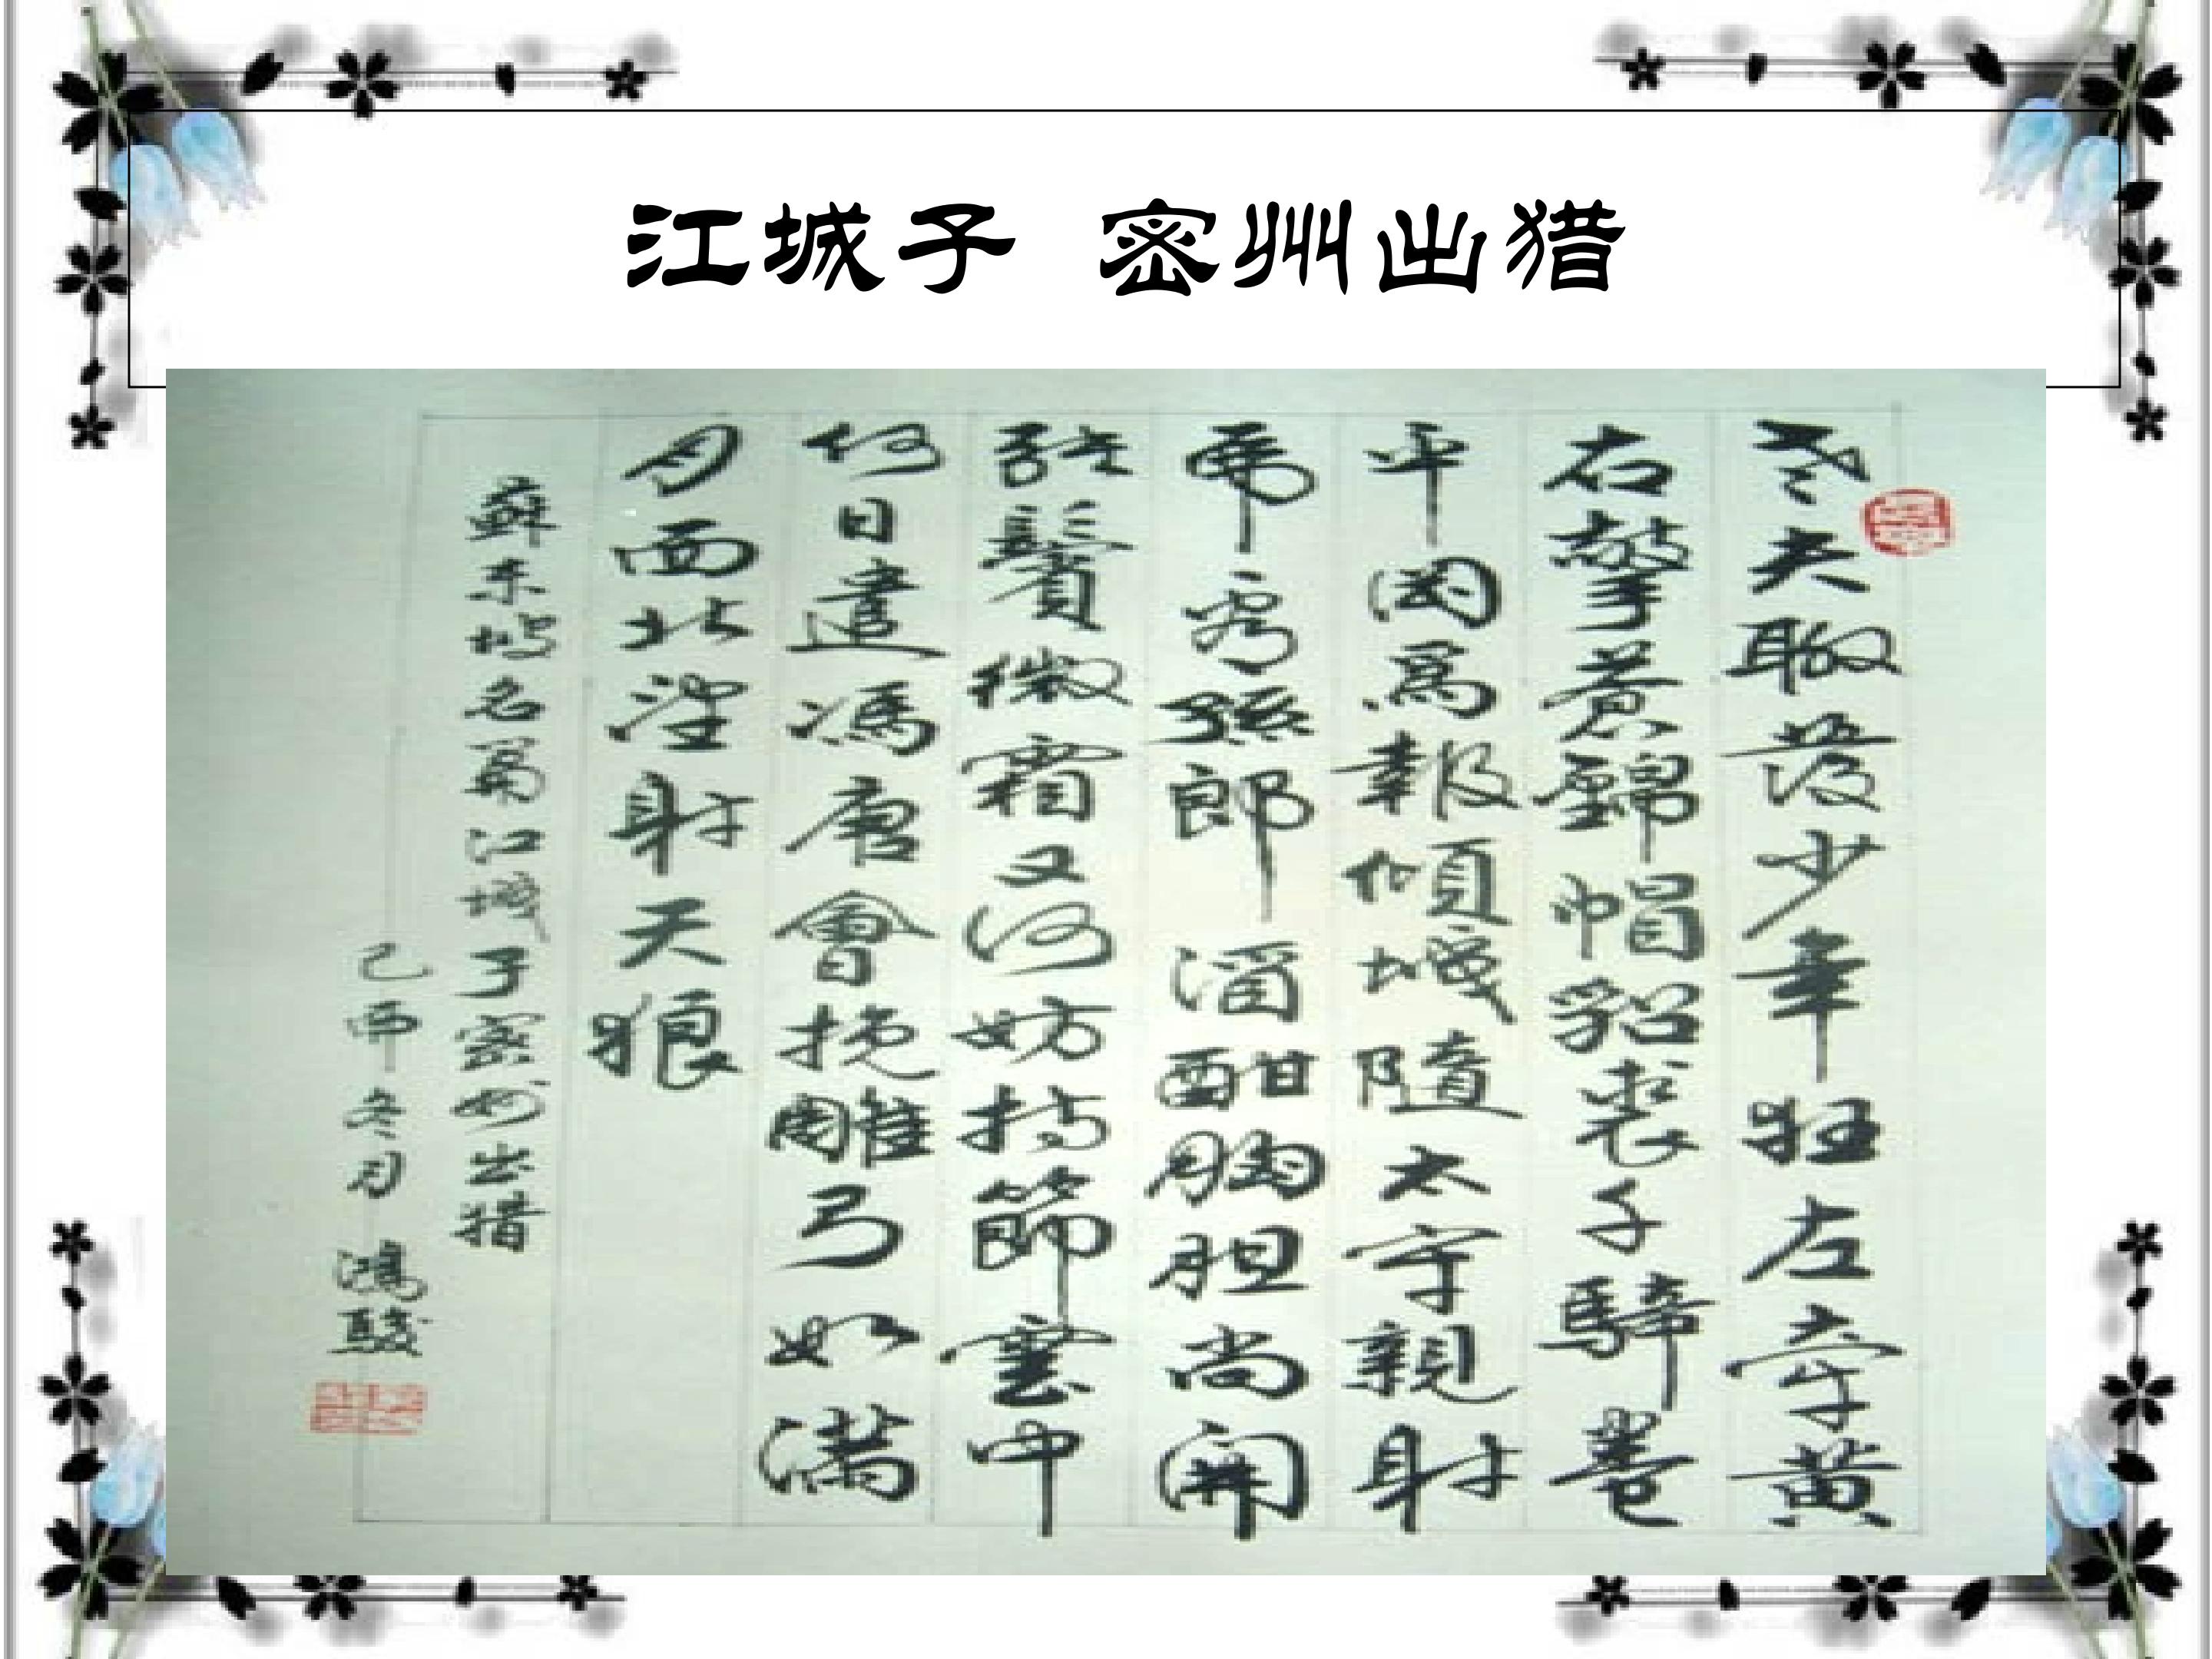 江城子 密州出猎
老夫聊發少年狂左牽黃
右擎蒼錦帽貂裘千騎卷
平岡為報傾城隨太守親射
虎看孫郎酒酣胸胆尚開
鬢微霜又何妨持節雲中
何日遣馮唐會挽雕弓如滿
月西北望射天狼
蘇東坡名江城子密州出猎
己冬月